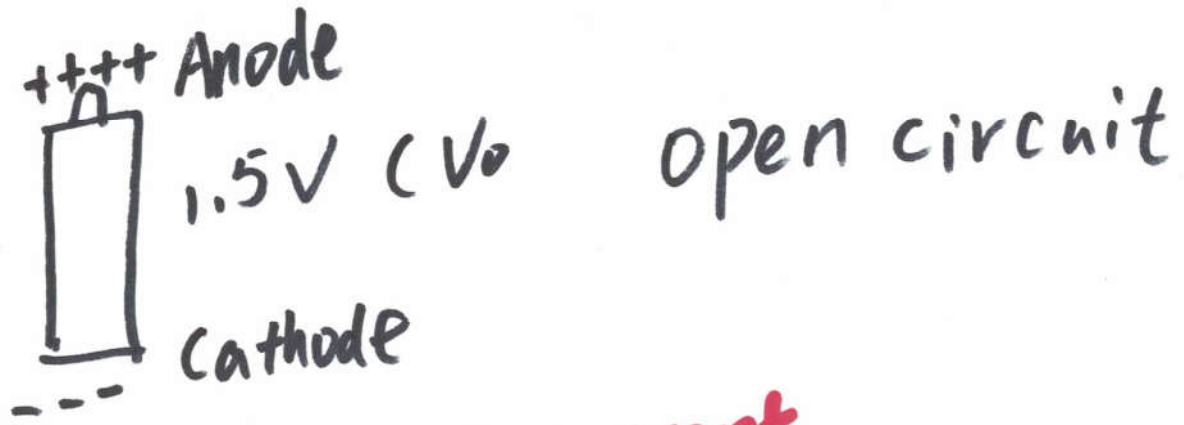 ++++ Anode
1.5V (Vo
open circuit
Cathode
---